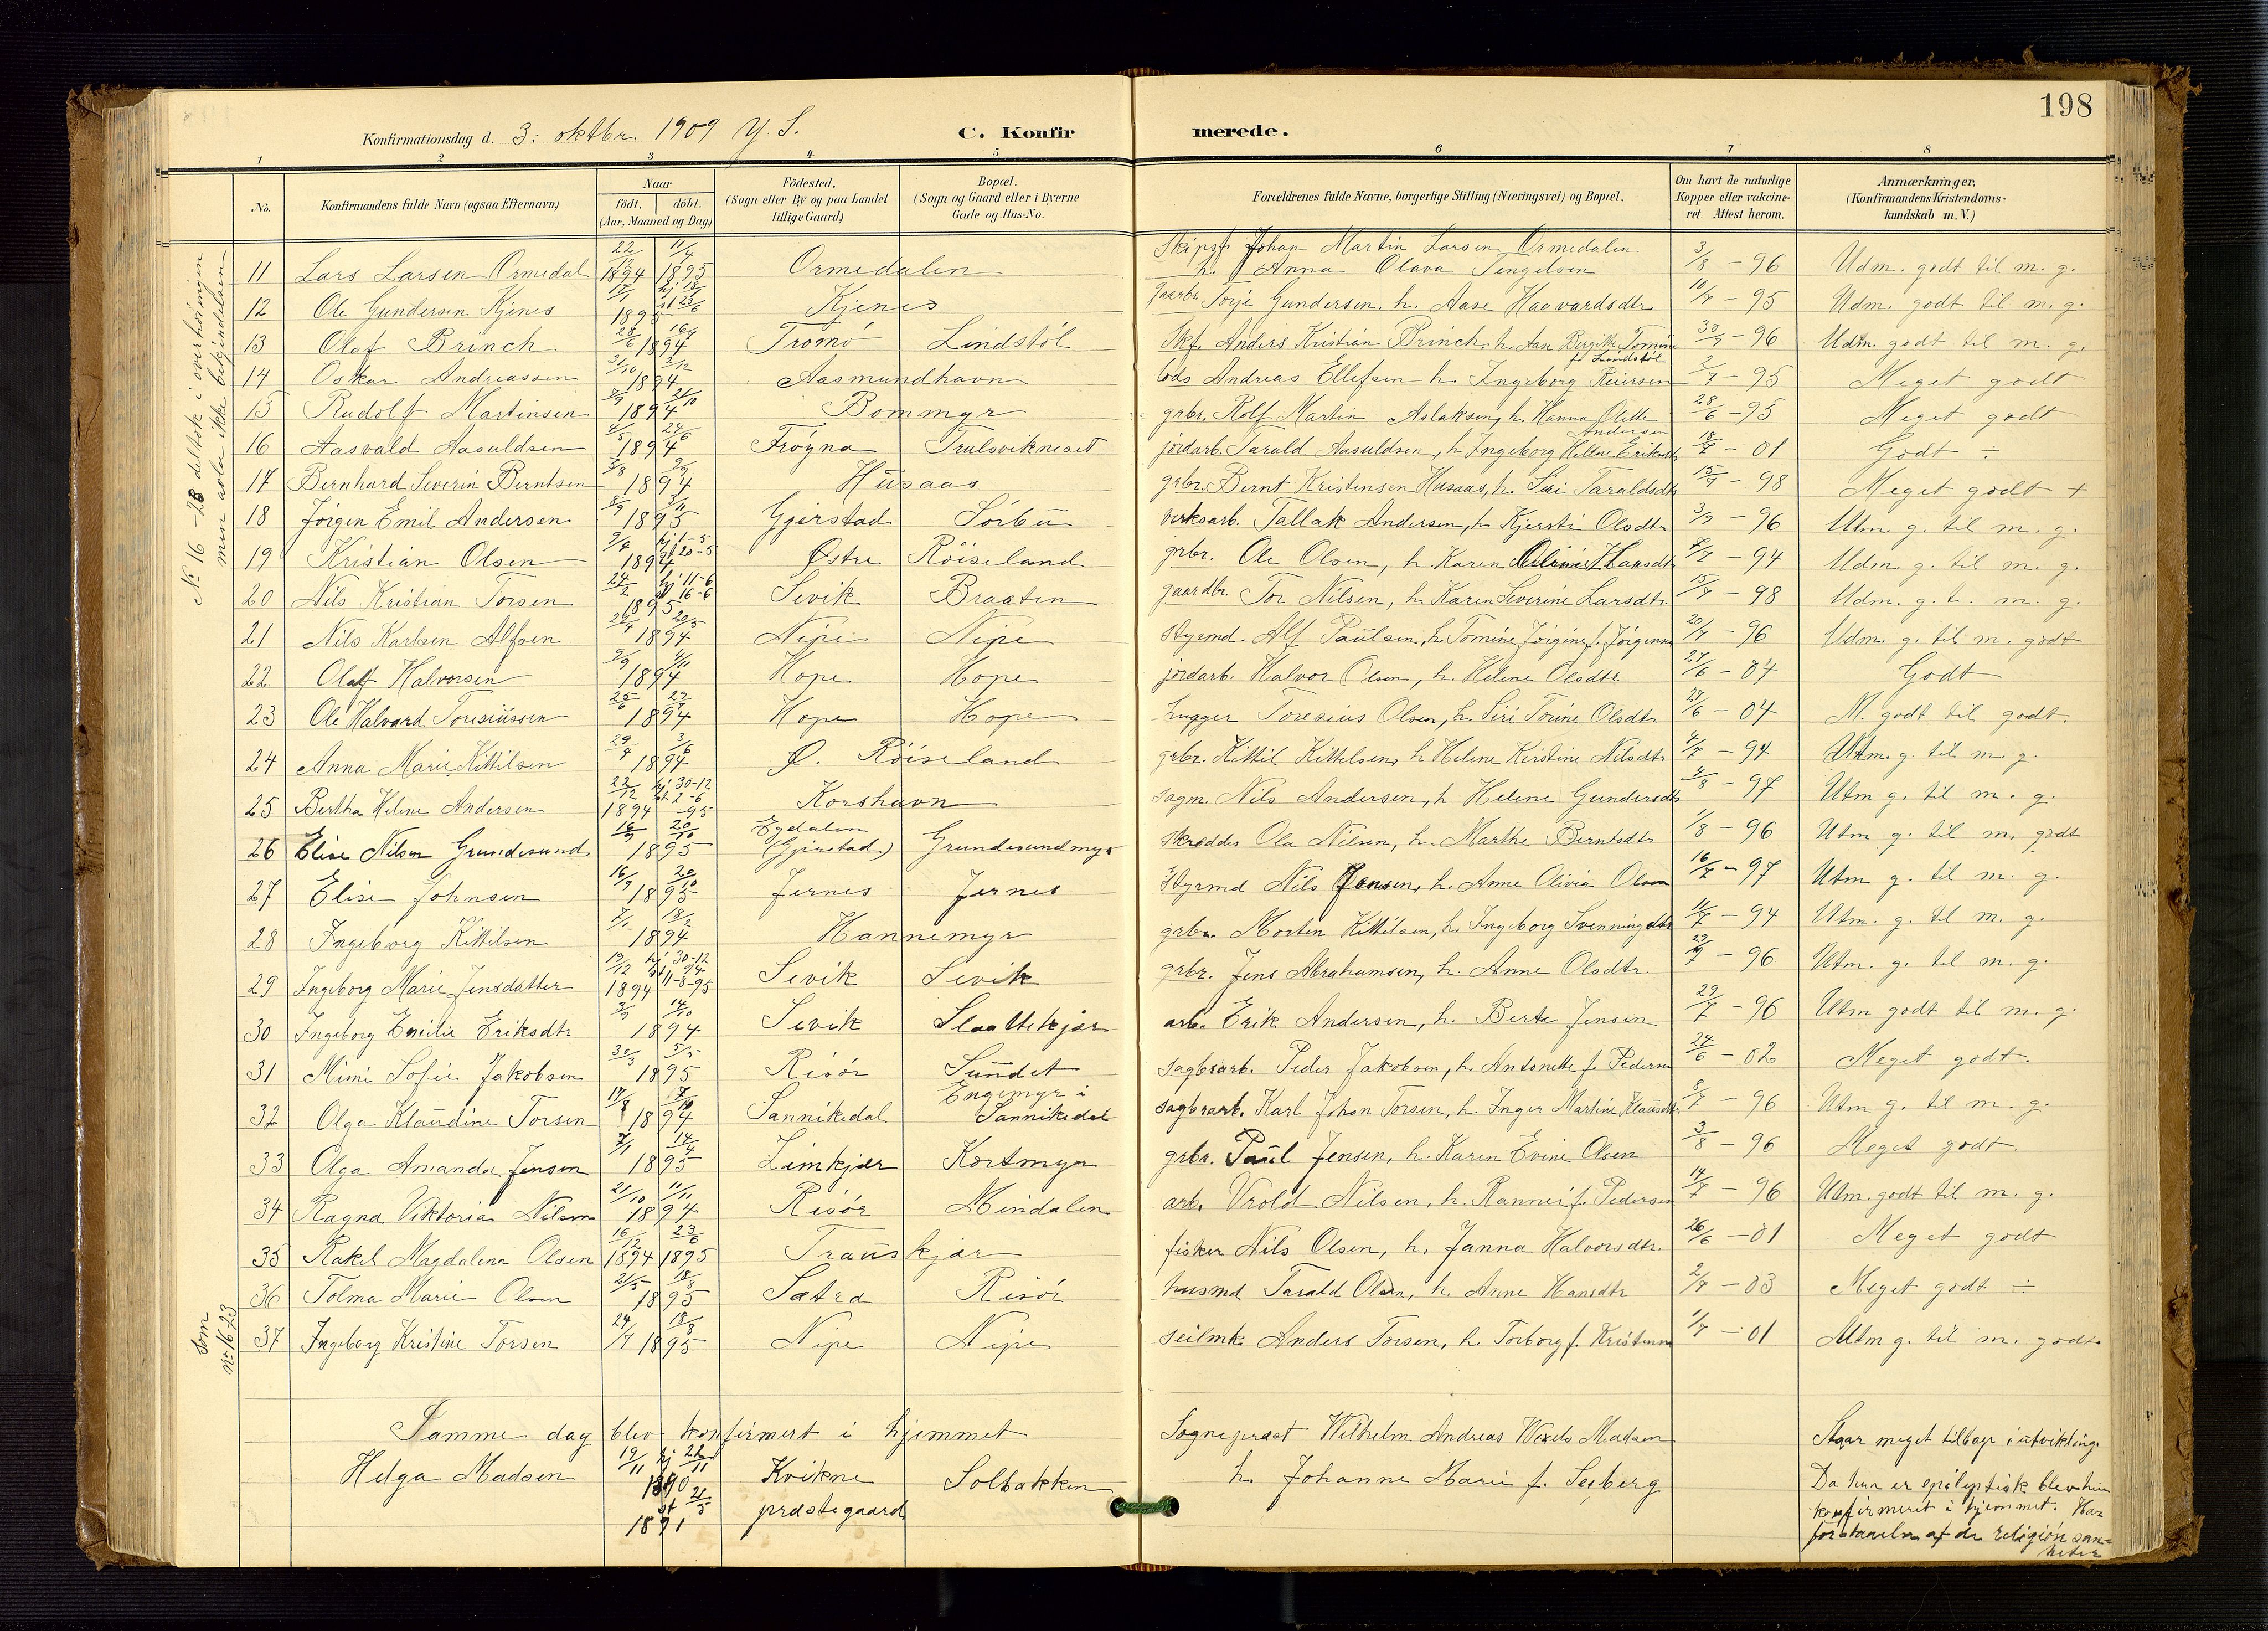 198
Konfirmationsdag d. 3. oktbr. 1909 Y. S. C. Konfirmerede.
1 2 3 4 5 6 7 8
No. Konfirmandens fulde Navn (ogsaa Efternavn) Naar født. døbt. (Aar, Maaned og Dag) Födested. (Sogn eller By og paa Landet tillige Gaard) Bopæl. (Sogn og Gaard eller i Byerne Gade og Hus-No. Forældrenes fulde Navne, borgerlige Stilling (Næringsvei) og Bopæl. Om havt de naturlige Kopper eller vakcineret Attest herom. Anmærkninger. (Konfirmandens Kristendomskundskab m. V.)
No 16-28 deltok i overhøringen
men avla ikke bekjendelsen
11 Lars Larsen Ormedal 22/12 1894 11/4 1895 Ormedalen Skipsf. Johan Martin Larsen Ormedalen h. Anna Olava Tengelsen 3/8 - 96 Udm. godt til m. g.
12 Ole Gundersen Kjenes 1895 Kjenes Gaardbr. Torje Gundersen, h. Aase Haavardsdtr. 10/7 - 95 Udm. godt til m. g.
13 Olaf Brinch 28/6 16/9 1894 Tromö Lindstöl Skf. Anders Kristian Brinch, h. Ane Bergitte Tomine f. Lindstöl 30/7 - 96 Udm. godt til m. g.
14 Oskar Andreassen 31/10 2/12 1894 Aasmundhavn lods Andreas Ellefsen h. Ingeborg Reiersen 2/7 - 95 Meget godt
15 Rudolf Martinsen 7/9 21/10 1894 Bommyr grbr. Rolf Martin Aslaksen, h. Hanna Olette Andersen 28/6 - 95 Meget godt
16 Aasvald Aasuldsen 4/5 24/6 1894 Fröyna Trulsvikneset jordarb. Tarald Aasuldsen, h. Ingeborg Helene Eriksdtr 18/7 - 01 Godt ÷
17 Bernhard Severin Berntsen 1894 Husaas grbr. Bernt Kristensen Husaas, h. Siri Taraldsdtr 15/7 - 98 Meget godt +
18 Jörgen Emil Andersen 1895 Gjerstad Sörbu verksarb. Tallak Andersen, h. Kjersti Olsdtr. - 96 Utm. g. til m. g.
19 Kristian Olsen hj 1-5 20-5 1894 Østre Röiseland grbr. Ole Olsen, h. Karen Hansdtr - 94 Udm. g. til m. g.
20 Nils Kristian Torsen 24/2 hj 11-6 st 16-6 1895 Sevik Braaten gaardbr. Tor Nilsen, h. Karen Severine Larsdtr. 15/7 - 98 Udm. g. t. m. g.
21 Nils Karlsen Alfsen 20/5 1894 Nipe Nipe Styrmd. Alf Paulsen, h. Tomine Jörgine f. Jörgensen 20/7 - 96 Udm. g. til m. godt
22 Olaf Halvorsen 9/9 4/11 1894 Hope Hope jordarb. Halvor Olsen, h. Helene Olsdtr. 27/6 - 04 Godt
23 Ole Halvard Toresiussen 1894 Hope Hope hugger Toresius Olsen, h. Siri Torine Olsdtr 27/6 - 04 M. godt til godt.
24 Anna Marie Kittilsen 29/4 3/6 1894 Ø. Röiseland grbr. Kittil Kittelsen, h. Helene Kirstine Nilsdtr 4/7 - 94 Utm. g. til m. g.
25 Bertha Helene Andersen 22/12 1894 hj 30-12 st 2-6 -95 Korshavn sagm. Nils Andersen, h. Helene Gundersdtr 4/8 - 97 Utm g. til m. g.
26 Elise Nilsen Grundesund 16/9 20/10 1895 Eydalen (Gjerstad) Grundesundmyr skrædder Ola Nilsen, h. Marthe Berntsdtr 1/8 - 96 Utm g. til m. godt
27 Elise Johnsen 16/9 20/10 1895 Jernes Jernes Styrmd Nils Jensen, h. Anne Olivia Olsen 16/7 - 97 Utm g. til m. g.
28 Ingeborg Kittilsen 7/1 18/2 1894 Hannemyr grbr. Morten Kittilsen, h. Ingeborg Svenningsdtr 11/7 - 94 Utm. g. til m. g.
29 Ingeborg Marie Jensdatter 19/12 1894 hj 30-12 94 st 11-8-95 Sevik Sevik grbr. Jens Abrahamsen, h. Anne Olsdtr. - 96 Utm. g. til m. g.
30 Ingeborg Emilie Eriksdtr 3/9 14/10 1894 Sevik Slaattekjær arb. Erik Andersen, h. Berte Jensen 29/7 - 96 Utm godt til m. g.
31 Mimi Sofie Jakobsen 30/3 5/5 1895 Risör Sundet sagbrarb. Peder Jakobsen, h. Antonette f. Pedersen 24/6 - 02 Meget godt.
32 Olga Klaudine Torsen 14/8 7/10 1894 Sannikedal Engemyr i Sannikedal sagbrarb. Karl Johan Torsen, h. Inger Martine Klausdtr. 8/7 - 96 Utm g. til m. g.
33 Olga Amanda Jensen 7/1 14/4 1895 Limkjær Kortmyr grbr. Paul Jensen, h. Karen Evine Olsen 3/8 - 96 Meget godt.
34 Ragna Viktoria Nilsen 21/10 11/11 1894 Risör Mindalen arb. Vrold Nilsen, h. Rannei f. Pedersen 14/7 - 96 Utm. godt til m. g.
35 Rakel Magdalena Olsen 16/12 1894 23/6 1895 Trauskjær fisker Nils Olsen, h. Janna Halvorsdtr. 26/6 - 01 Meget godt
36 Tolma Marie Olsen 21/5 18/8 1895 Sætra Risör husmd Tarald Olsen, h. Anne Hansdtr 2/7 - 03 Meget godt ÷
Som
no. 16-23
37 Ingeborg Kristine Torsen 24/7 18/8 1895 Nipe Nipe seilmk. Anders Torsen, h. Torborg f. Kristensen 1/7 - 01 Utm g. til m. godt.
Samme dag blev konfirmert i hjemmet
Helga Madsen 19/11 hj 22/11 1890 st 21/5 1891 Kvikne præstegaard Solbakken
Sogneprest Wilhelm Andreas Wexels Madsen
h. Johanne Marie f. Seeberg
Staar meget tilbage i utvikling.
Da hun er epileptisk blev hun
konfirmeret i hjemmet. Har
forstaaelse af de religiøn san=
heter